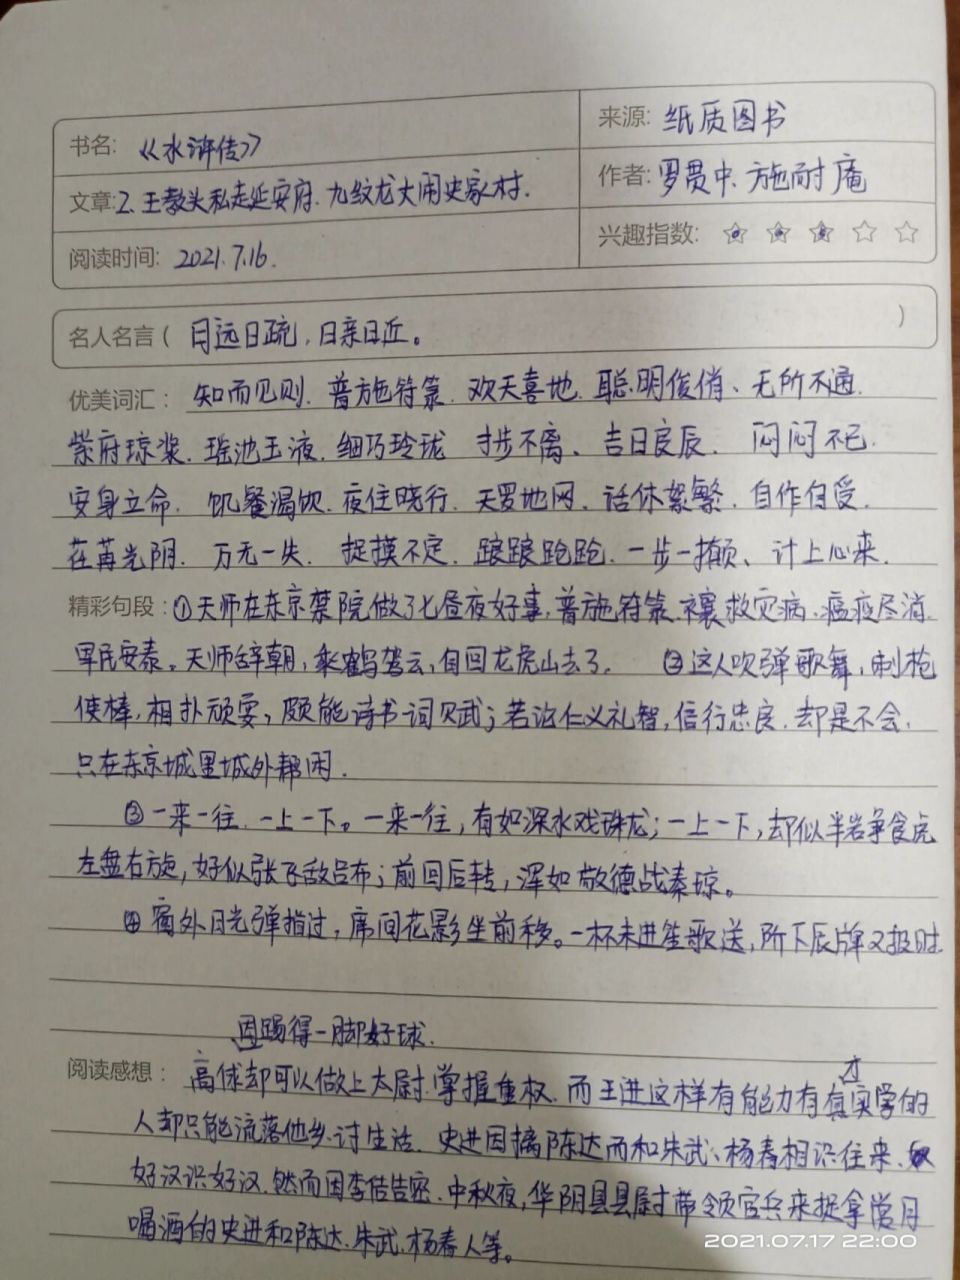 书名: 《水浒传》
来源: 纸质图书
文章: 2. 王教头私走延安府. 九纹龙大闹史家村.
作者: 罗贯中. 施耐庵
阅读时间: 2021.7.16.
兴趣指数: ★ ★ ★ ☆ ☆
名人名言( 日远日疏, 日亲日近。 )
优美词汇: 知而见则. 普施符箓. 欢天喜地. 聪明俊俏、无所不通.
紫府琼浆. 瑶池玉液. 细巧玲珑 寸步不离、吉日良辰. 闷闷不已.
安身立命. 饥餐渴饮. 夜住晓行. 天罗地网. 话休絮繁. 自作自受.
荏苒光阴. 万无一失. 捉摸不定. 踉踉跄跄. 一步一攧、计上心来.
精彩句段: ①天师在东京禁院做了七昼夜好事, 普施符箓. 禳救灾病. 瘟疫尽消.
军民安泰。天师辞朝, 乘鹤驾云, 自回龙虎山去了. ②这人吹弹歌舞, 刺枪
使棒, 相扑顽耍, 颇能诗书词赋; 若论仁义礼智, 信行忠良. 却是不会.
只在东京城里城外帮闲.
③一来一往. 一上一下。一来一往, 有如深水戏珠龙; 一上一下, 却似半岩争食虎
左盘右旋, 好似张飞敌吕布; 前回后转, 浑如敬德战秦琼。
④窗外日光弹指过, 席间花影坐前移。一杯未进笙歌送, 阶下辰牌又报时.
因踢得一脚好球.
阅读感想: 高俅却可以做上太尉. 掌握重权. 而王进这样有能力有真才实学的
人却只能流落他乡. 讨生活. 史进因擒陈达而和朱武、杨春相识往来.
好汉识好汉. 然而因李吉告密. 中秋夜, 华阴县县尉带领官兵来捉拿赏月
喝酒的史进和陈达. 朱武. 杨春人等。
2021.07.17 22:00